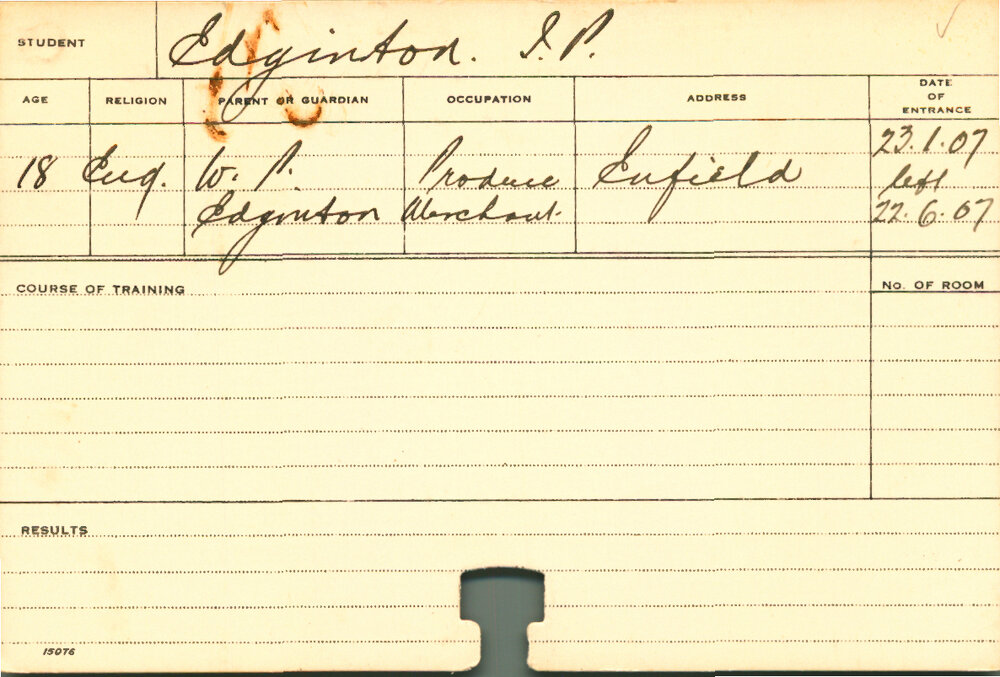 STUDENT Edginton. I.P.
AGE RELIGION PARENT OR GUARDIAN OCCUPATION ADDRESS DATE OF ENTRANCE
18 Eng. W. P. Produce Enfield 23.1.07
left
Edginton Merchant. 22.6.07
COURSE OF TRAINING No. OF ROOM
RESULTS
15076